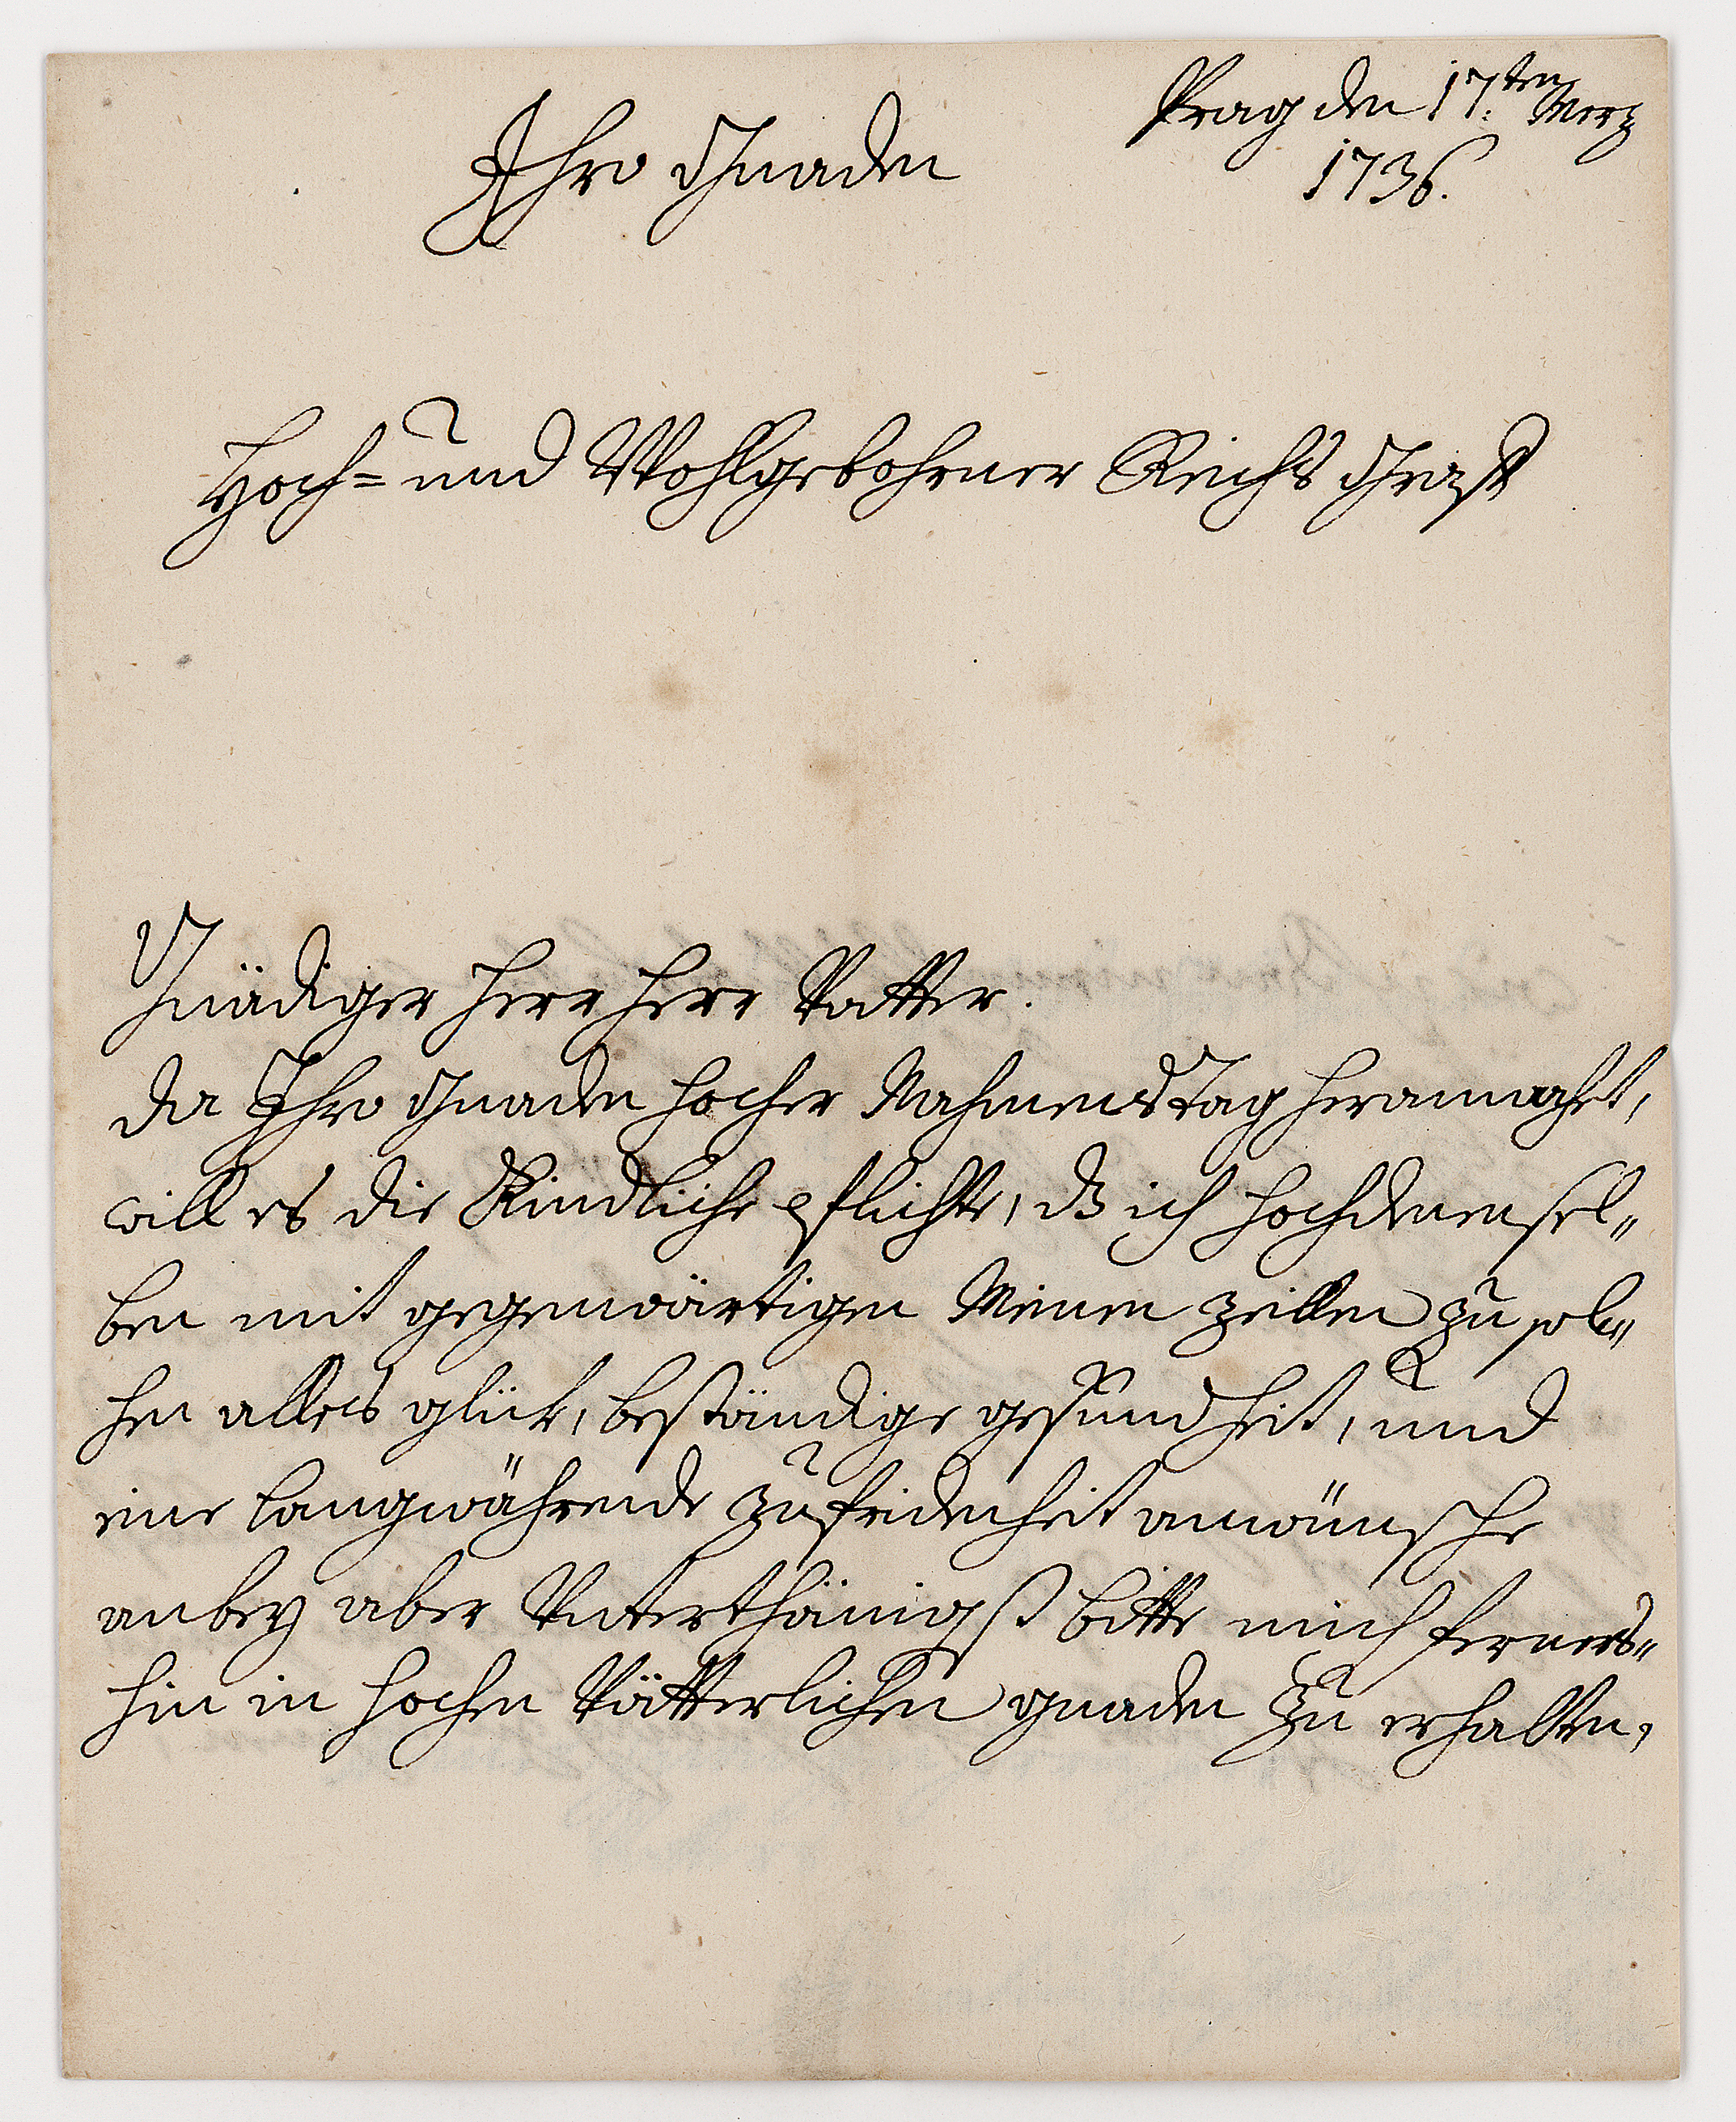 Prag den 17.ten Merz
1736.
Ihro Gnaden
Hoch= und Wohlgebohrner Reichs Graff
Gnädiger Herr Herr Vatter.
da Ihro Gnaden hocher Nahmens Tag herannacht,
will es die Kindliche pflicht, dß ich hochdenensel„
ben mit gegenwärtigen Meinen zeillen zu sol„
hen alles glük, beständige gesundheit, und
eine langwährende zufridenheit anwünsche
anbey aber Unterthänigst bitte mich ferners„
hin in hochen Vätterlichen gnaden zu erhalten,